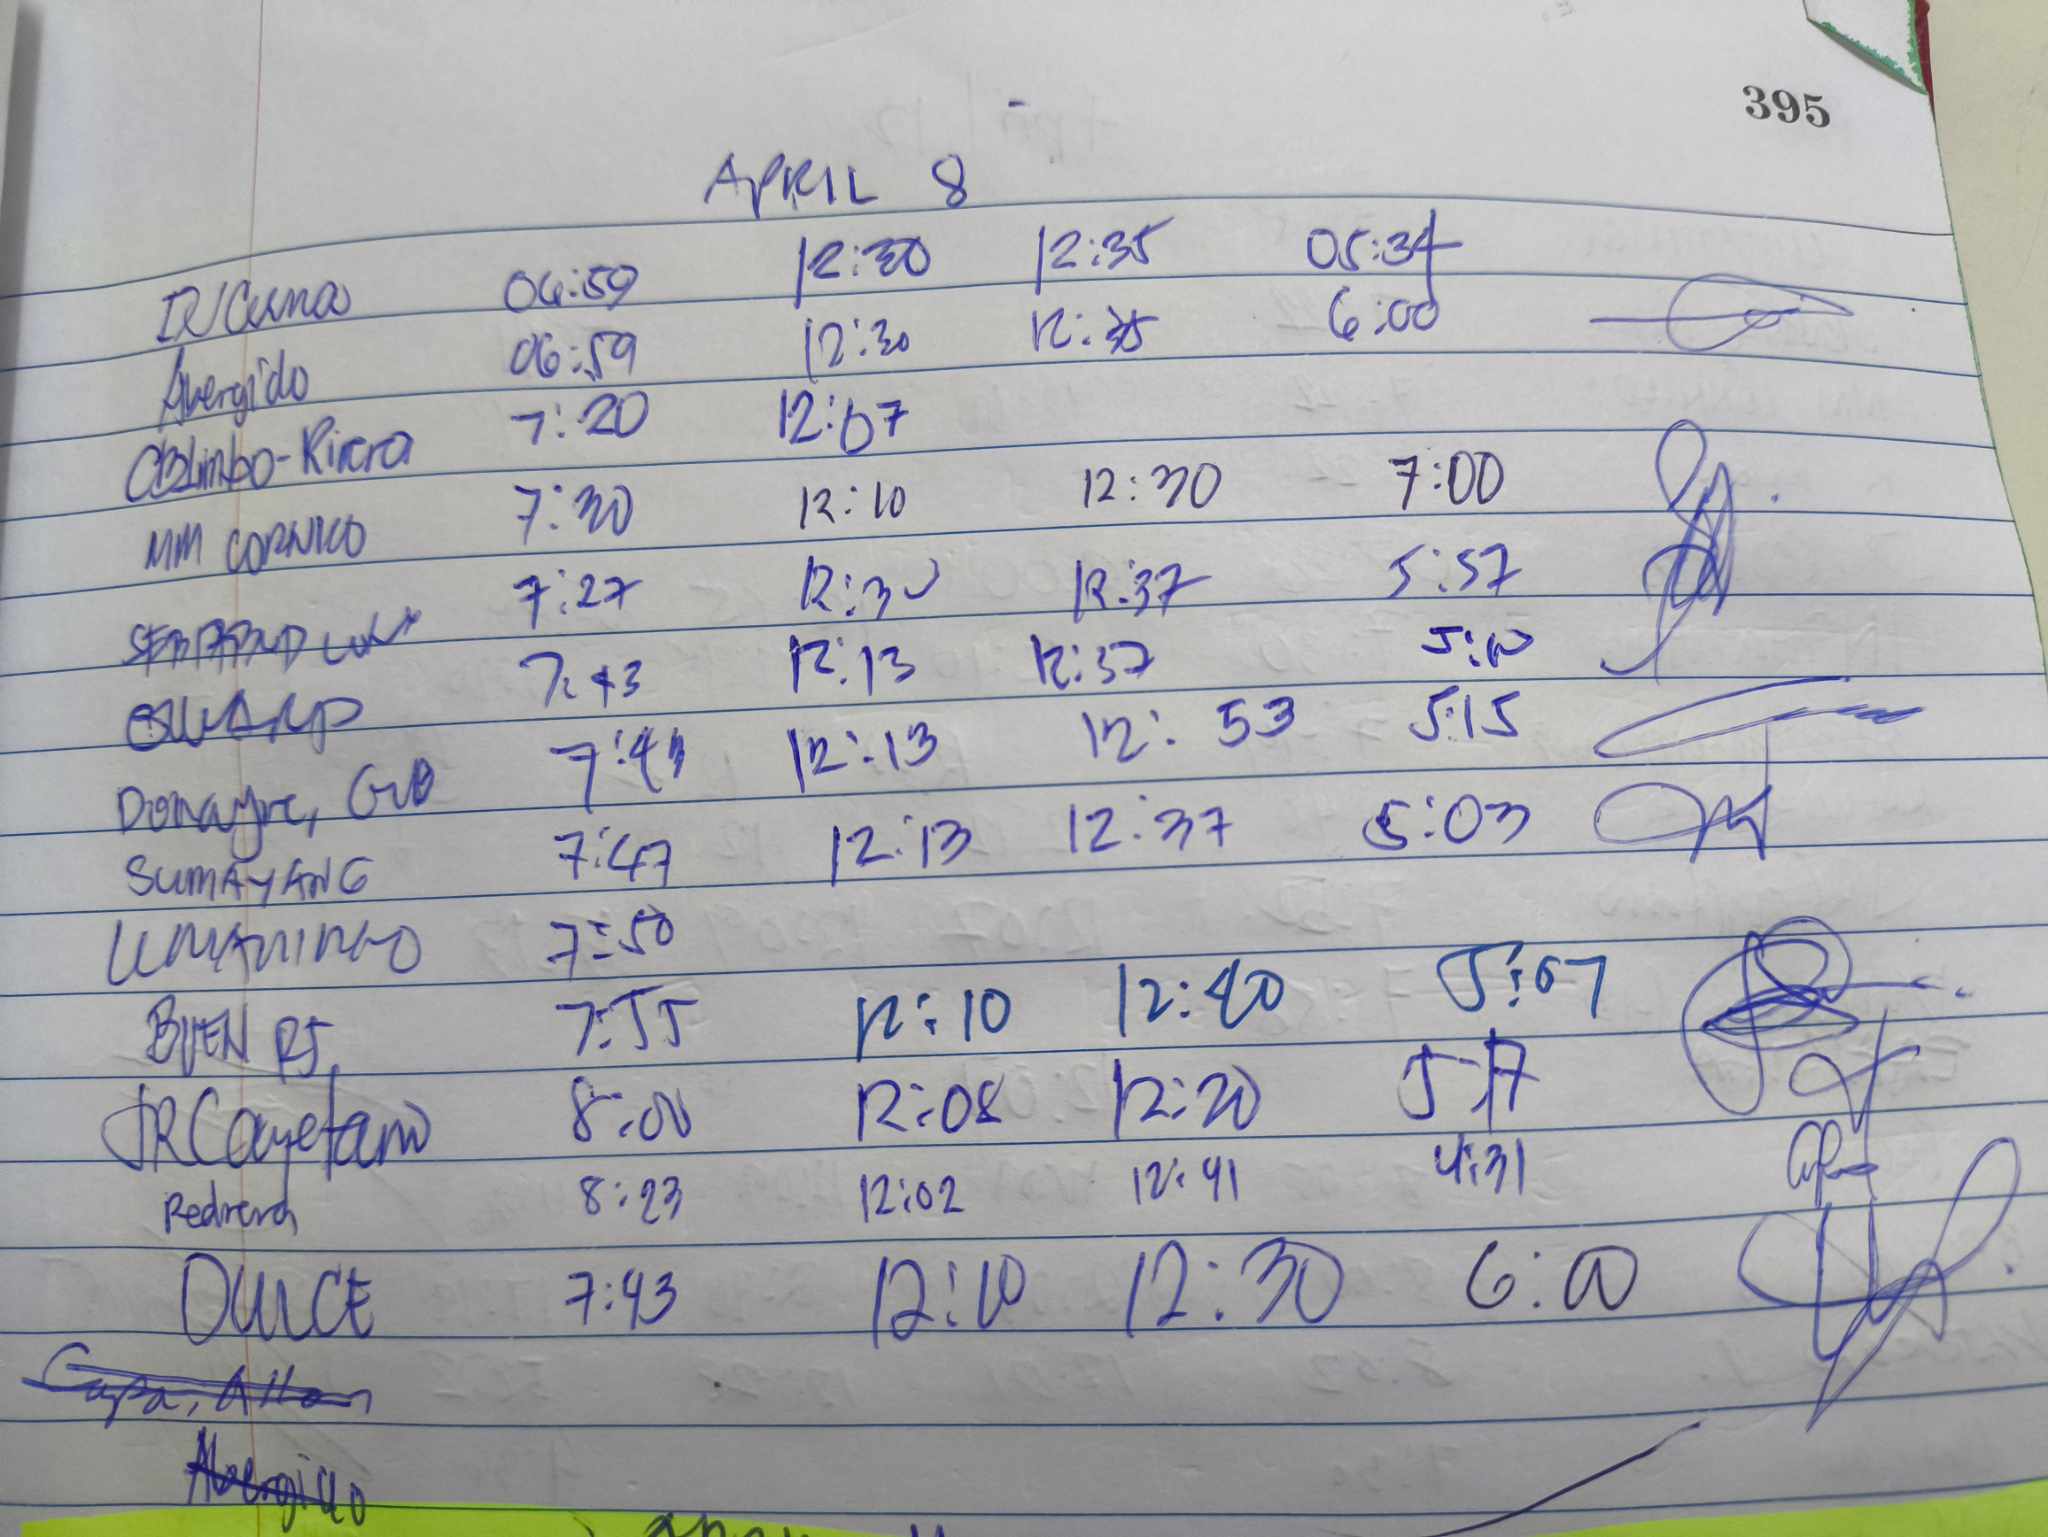 395
APRIL 8
06:59 12:30 12:35 05:34
Avergido 06:59 12:30 12:35 6:00
7:20 12:07
MM CORNICO 7:30 12:10 12:30 7:00
7:27 12:30 12:37 5:57
7:43 12:13 12:37 5:10
Donayre, GVB 7:43 12:13 12:53 5:15
SUMAYANG 7:47 12:13 12:37 5:03
UMANINGO 7:50
BUEN RJ. 7:55 12:10 12:40 5:07
JRCayetano 8:00 12:08 12:20 5:17
Pedrera 8:23 12:02 12:41 4:31
DULCE 7:43 12:10 12:30 6:00
Cupa, Allan
Avergido